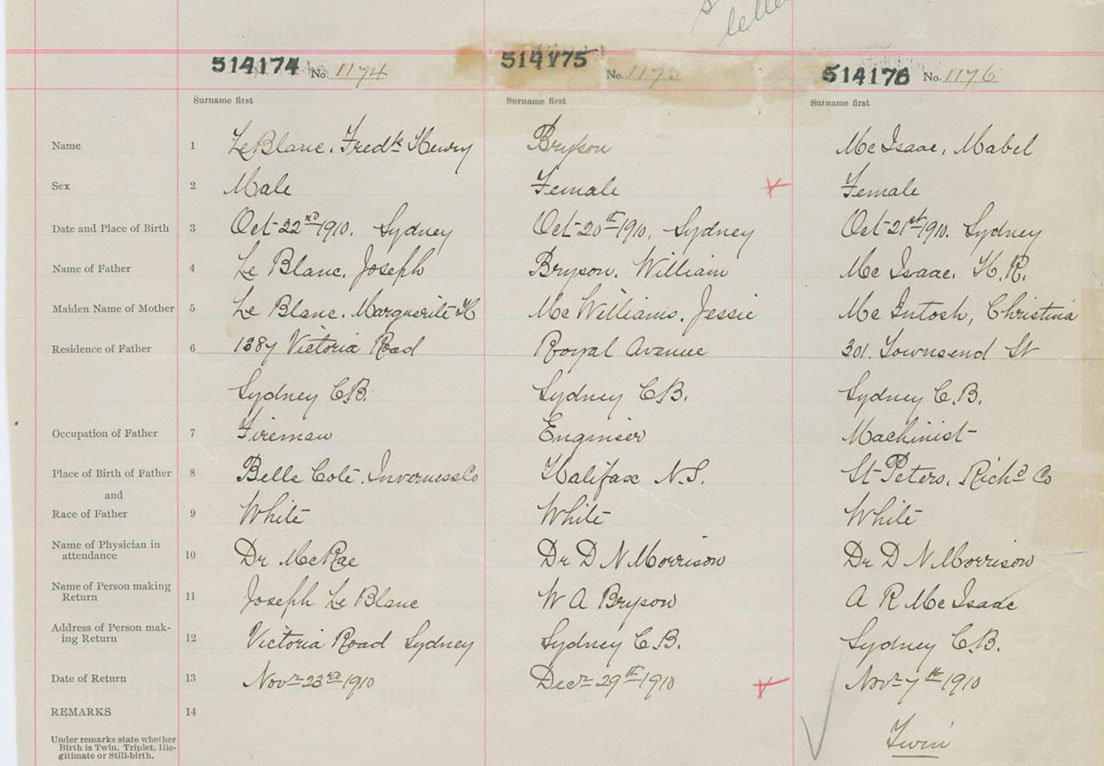 letter
514174 No. 1174 514175 No. 1175 514176 No. 1176
Surname first Surname first Surname first
Name 1 Le Blanc, Fredk Henry Bryson Mc Isaac, Mabel
Sex 2 Male Female Female
Date and Place of Birth 3 Oct 22nd 1910. Sydney Oct 20th 1910. Sydney Oct 21st 1910. Sydney
Name of Father 4 Le Blanc, Joseph Bryson, William Mc Isaac, H.R.
Maiden Name of Mother 5 Le Blanc, Marguerite H McWilliams, Jessie Mc Intosh, Christina
Residence of Father 6 1387 Victoria Road Royal Avenue 301. Townsend St
Sydney C.B. Sydney C.B. Sydney C.B.
Occupation of Father 7 Fireman Engineer Machinist
Place of Birth of Father 8 Belle Coté, Inverness Co Halifax N.S. St Peters, Richd Co
and
Race of Father 9 White White White
Name of Physician in
attendance 10 Dr McRae Dr D N Morrison Dr D N Morrison
Name of Person making
Return 11 Joseph Le Blanc W A Bryson A R McIsaac
Address of Person mak-
ing Return 12 Victoria Road Sydney Sydney C.B. Sydney C.B.
Date of Return 13 Novr 23rd 1910 Decr 29th 1910 Novr 7th 1910
REMARKS 14
Twin
Under remarks state whether
Birth is Twin, Triplet, Ille-
gitimate or Still-birth.